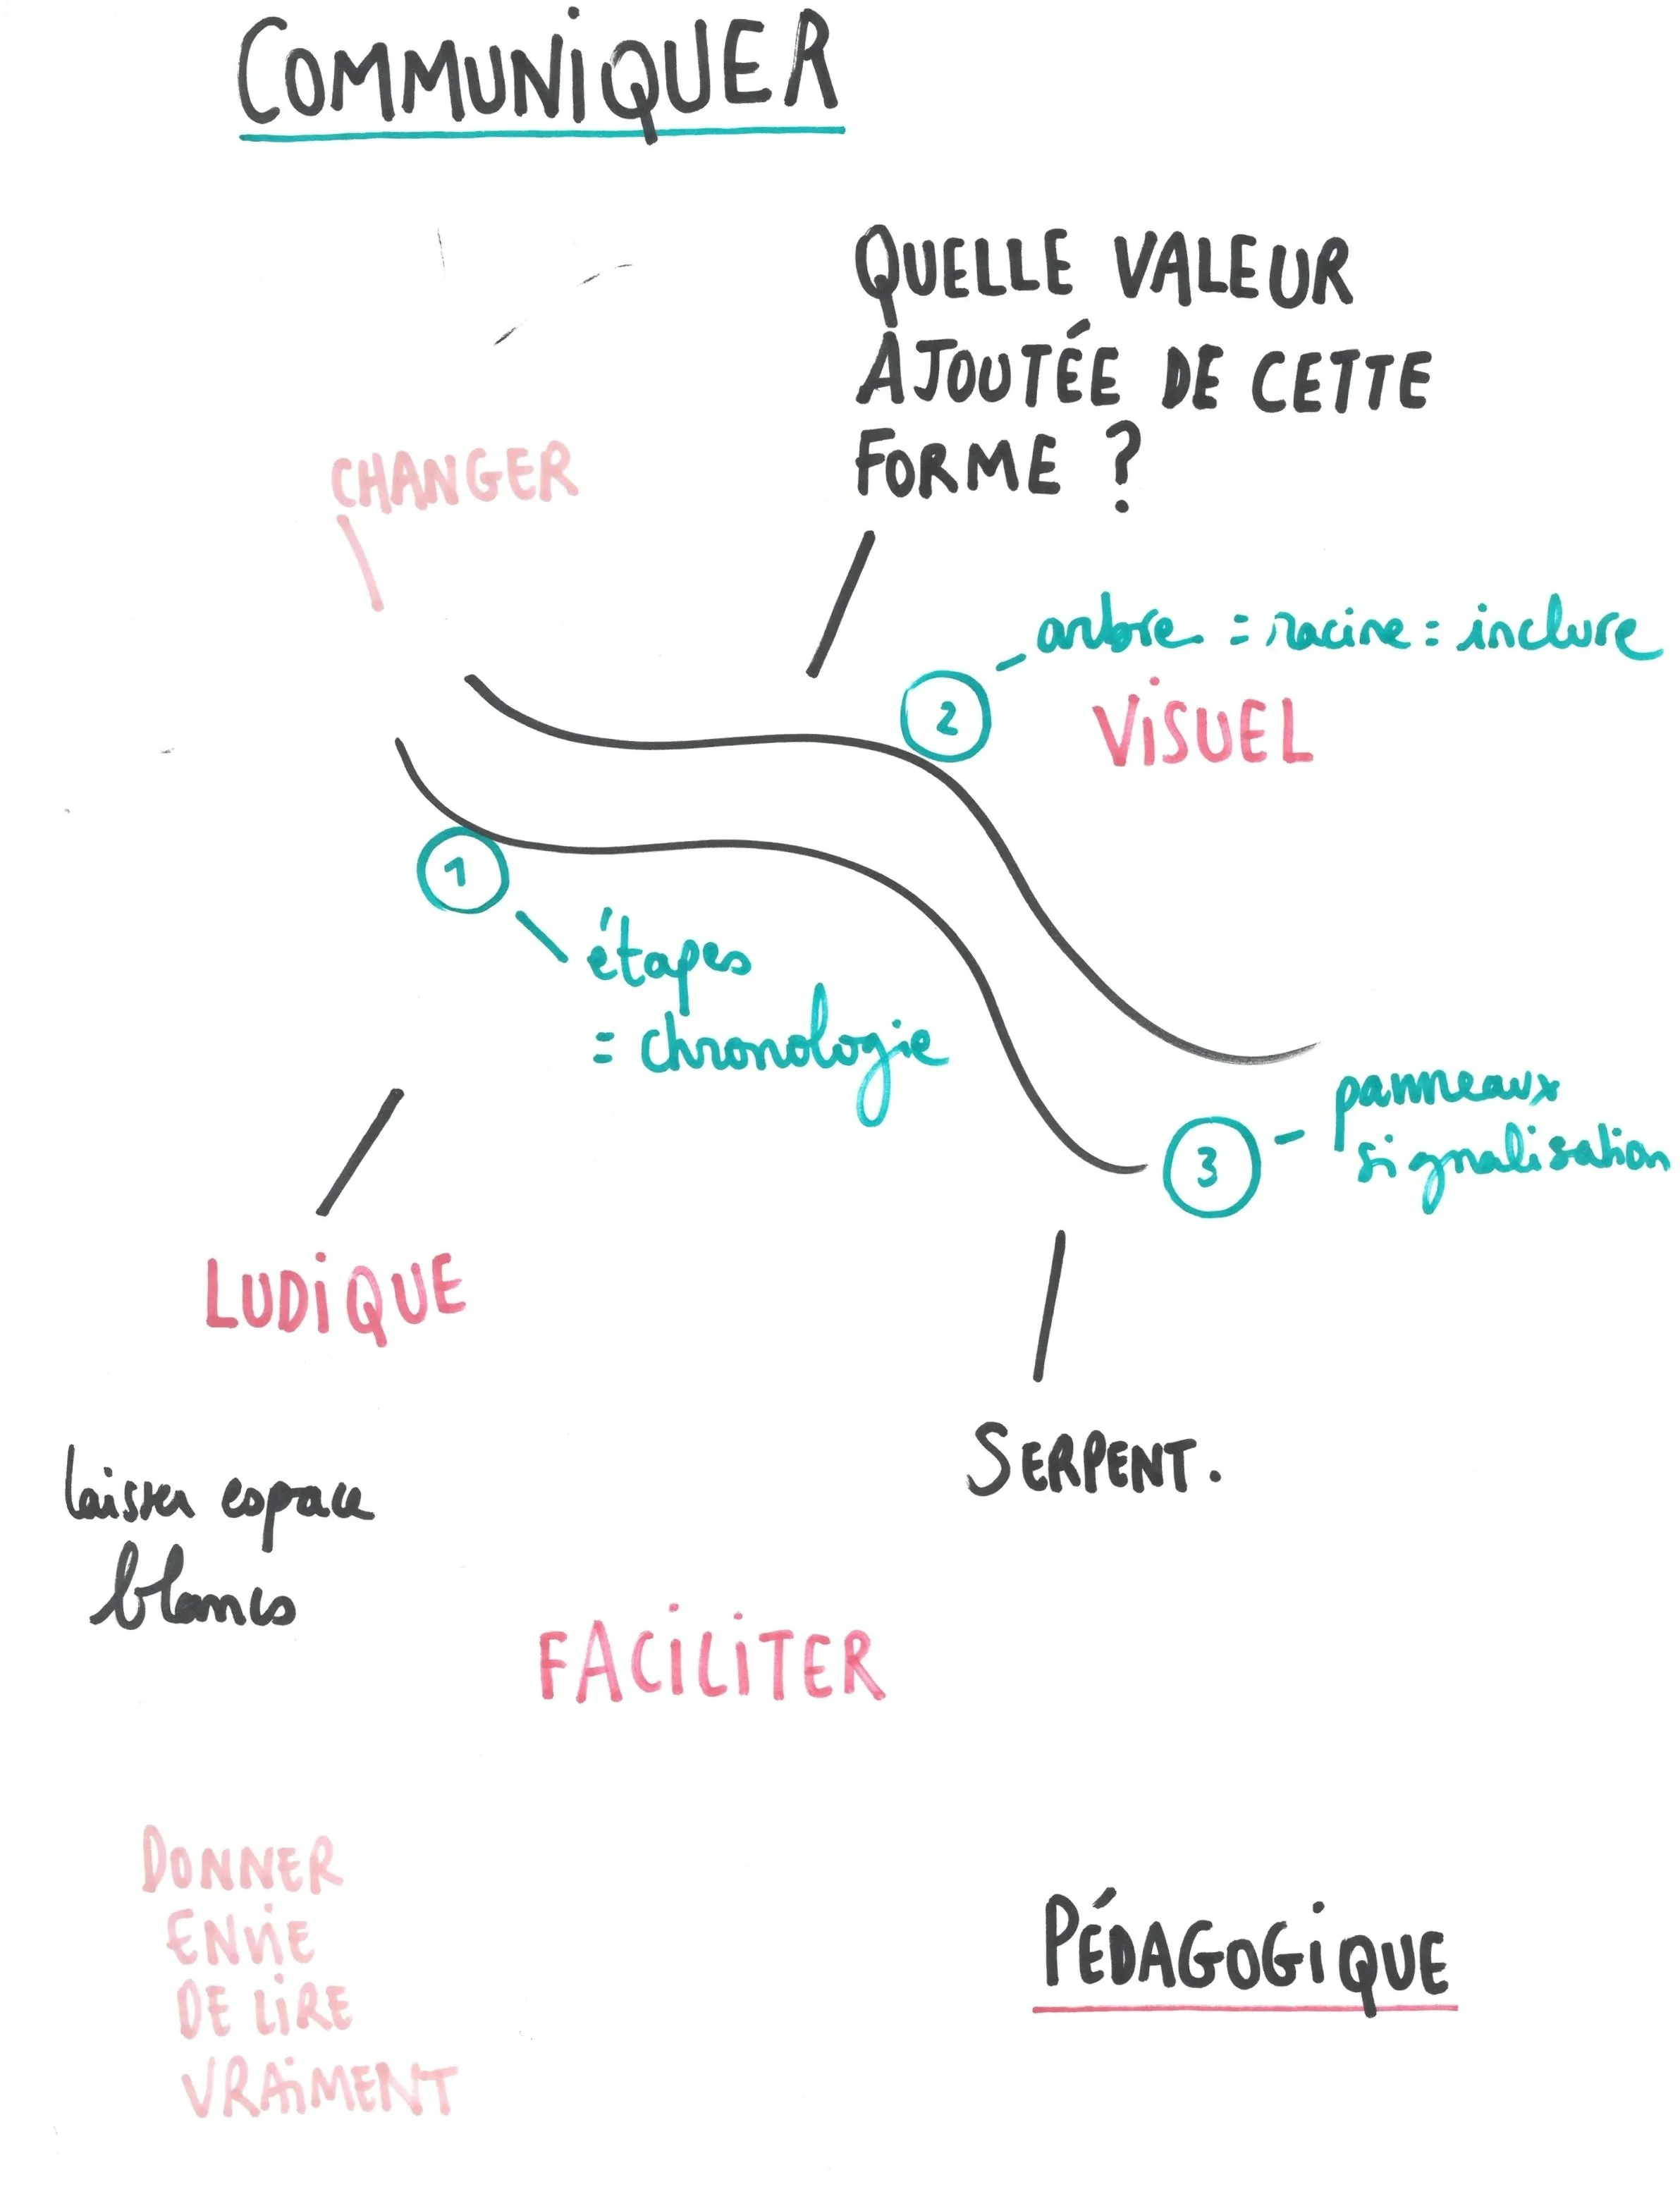 COMMUNIQUER
QUELLE VALEUR
AJOUTÉE DE CETTE
FORME ?
CHANGER
2 - arbre = racine = inclure
VISUEL
1
étapes
= chronologie
panneaux
3 - signalisation
LUDIQUE
SERPENT.
laisser espace
blancs
FACILITER
DONNER
ENVIE
DE LIRE
VRAIMENT
PÉDAGOGIQUE